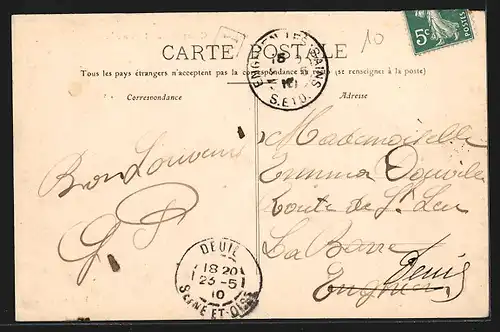 CARTE POSTALE
Tous les pays étrangers n'acceptent pas la correspondance au recto (se renseigner à la poste)
Correspondance
Adresse
10
5c
ENGHIEN LES BAINS
10
S. ET O.
Bon Souvenir
Mademoiselle
Emma Douville
Route de St Leu
La Barre
Deuil
Enghien
DEUIL
18 20
23 - 5
10
SEINE-ET-OISE